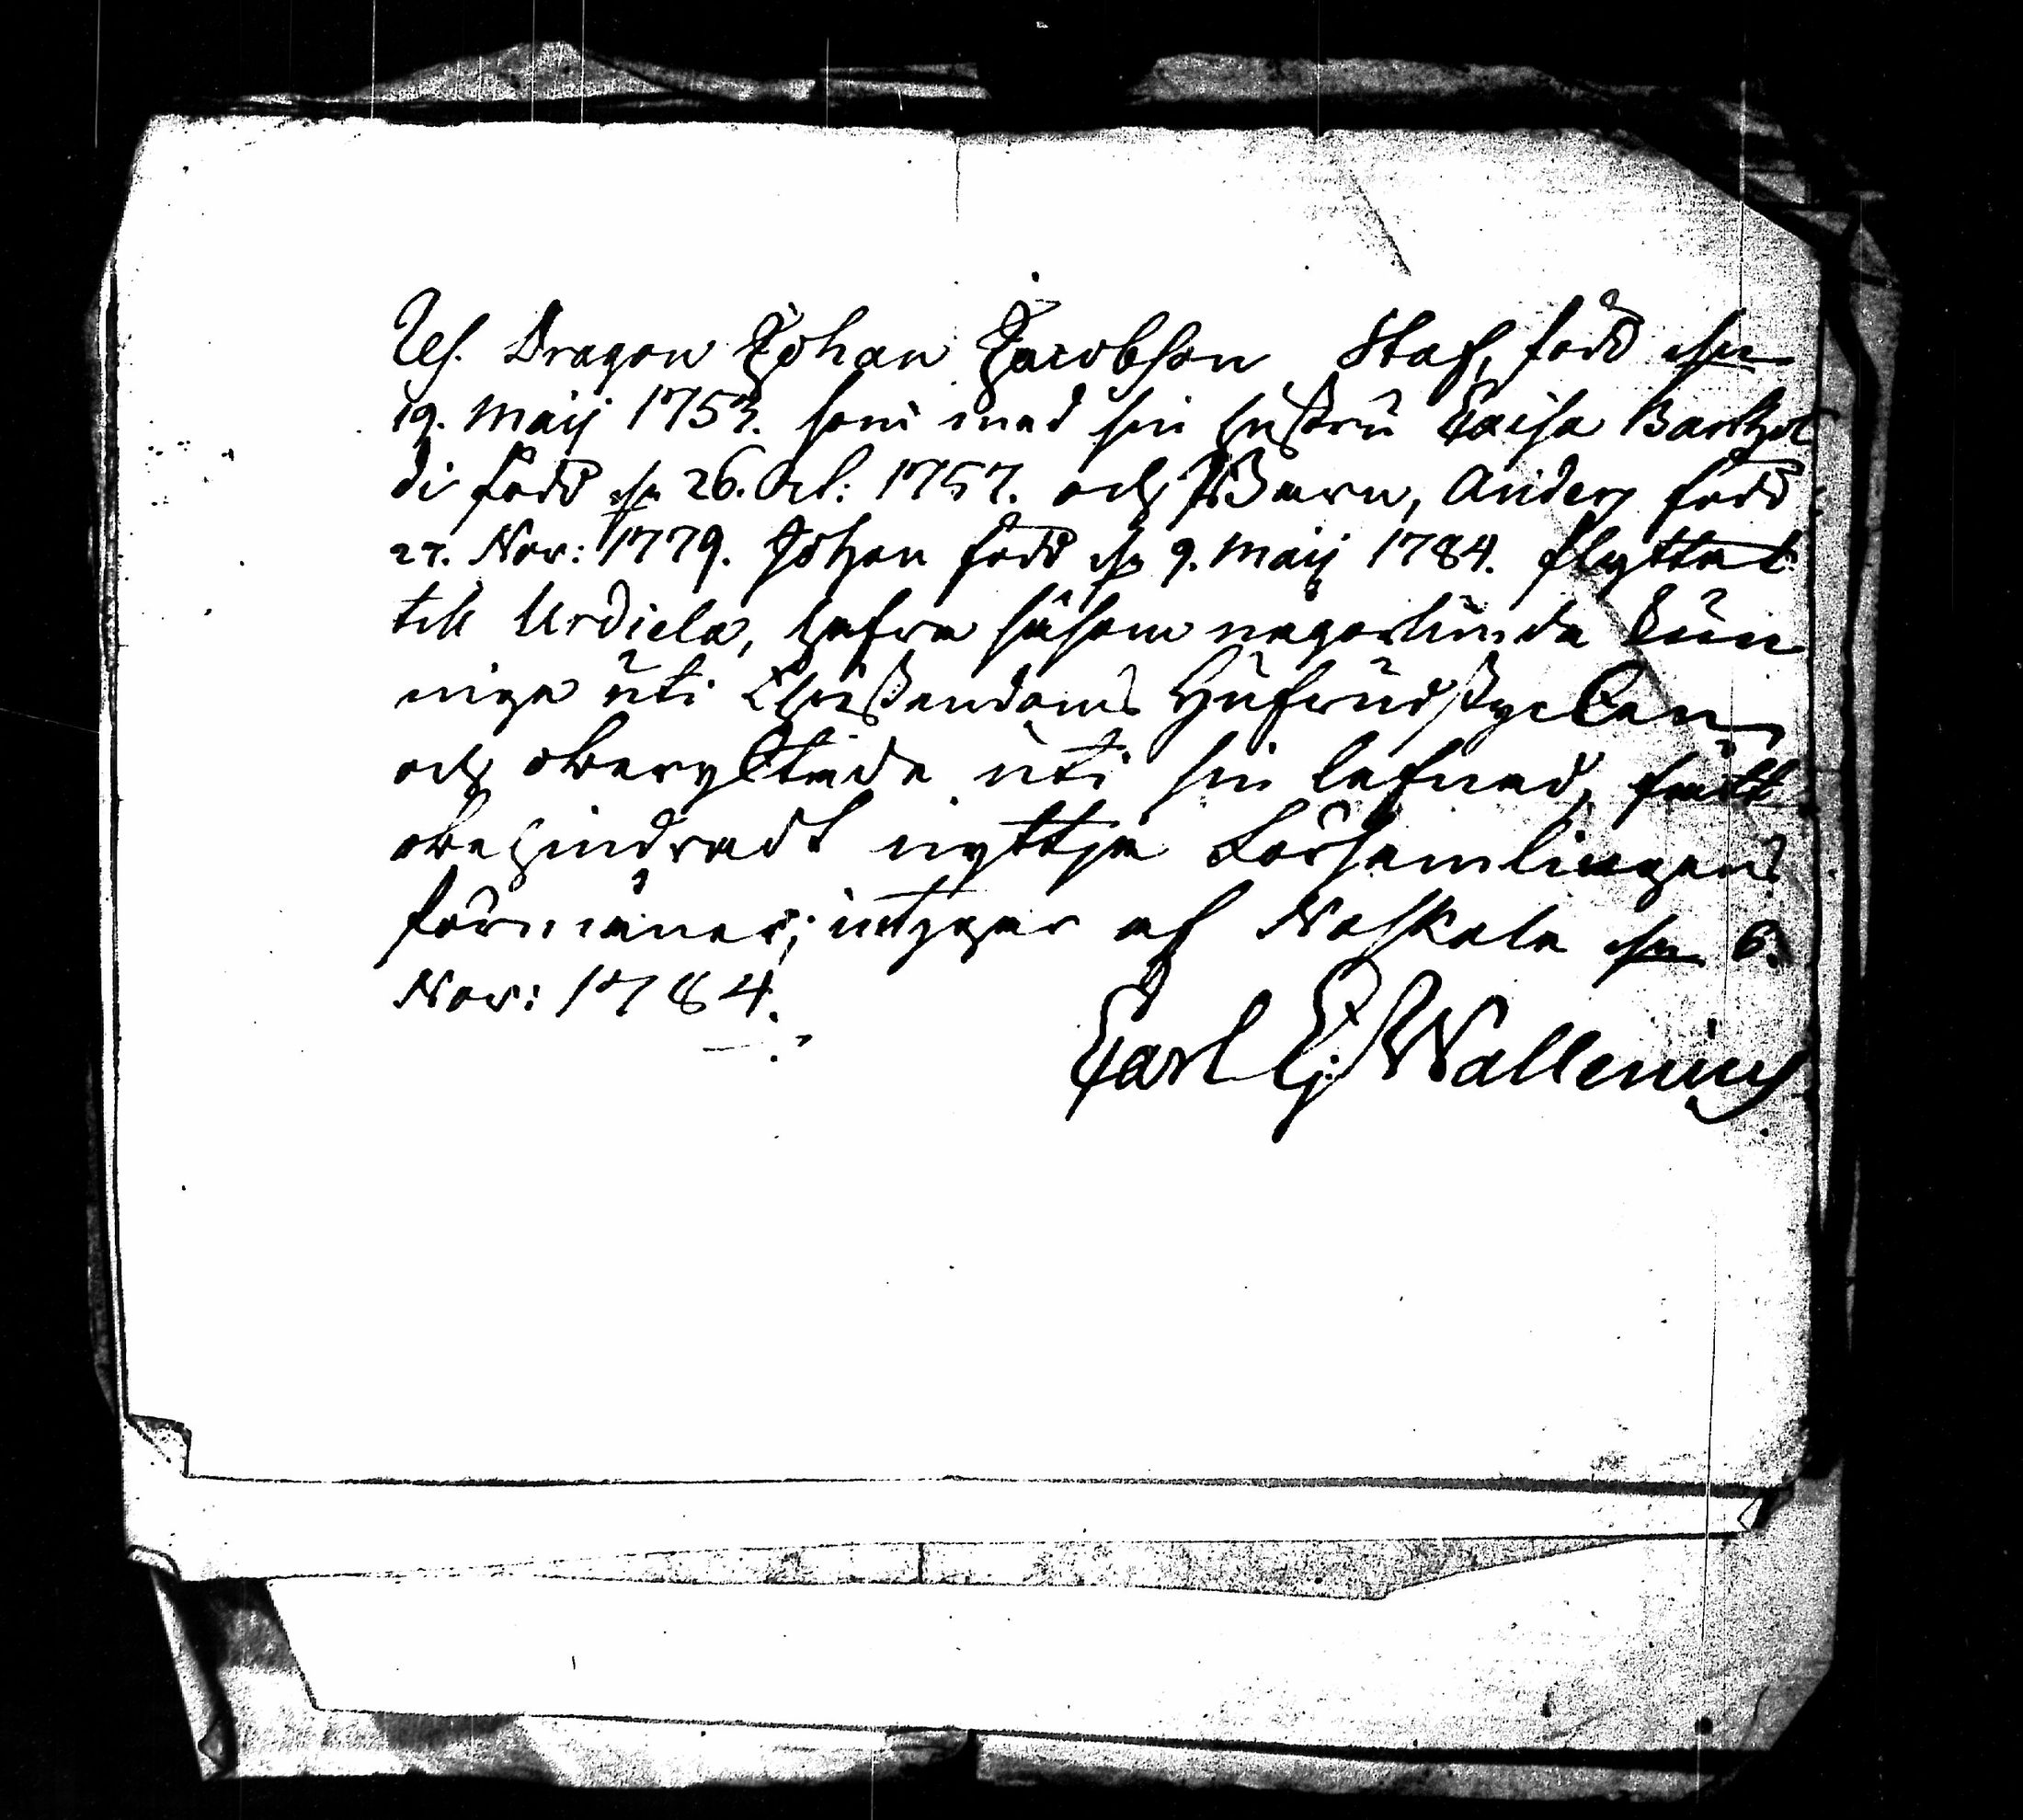 Res. Dragon Johan Jacobson Staf, född den
19. Maij 1753. som med sin hustru Caisa Barthol
di född d. 26. Oct: 1757. och Barn, Anders född
27. Nov: 1779. Johan född d. 9. Maij 1784. flyttat
till Urdiela, hafva såsom någorlunda kun
nige uti Christendoms Hufvudstycken
och oberyktade uti sin lefnad, fått
obehindradt nyttja Församlingens
förmåner; intygar af Noskala den 6.
Nov: 1784.
Carl G: Wallenius